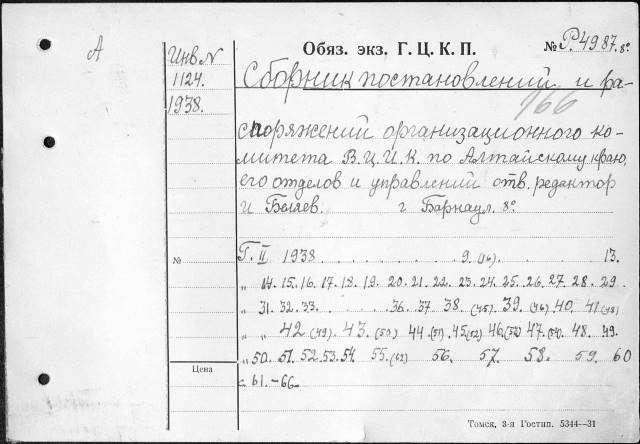 А
Инв N
1124.
1938.
Обяз. экз. Г. Ц. К. П.
№ Р.4987. 8°
Сборник постановлений и ра-
166
споряжений организационного ко-
митета В.Ц.И.К. по Алтайскому краю,
его отделов и управлений отв. редактор
И Беляев. г Барнаул. 8°
№
Г. II 1938 . . . . . . 9. (16) . . . . . 13.
„ 14. 15. 16. 17. 18. 19. 20. 21. 22. 23. 24. 25. 26. 27. 28. 29.
„ 31. 32. 33. . . . . . 36. 37. 38. (45). 39. (46). 40. 41 (48)
„ „ 42 (49). 43. (50) 44. (51). 45 (52). 46 (53) 47. (54). 48. 49.
„ 50. 51. 52. 53. 54. 55. (62) 56. 57. 58. 59. 60
= 61. - 66
Цена
Томск, 3-я Гостип. 5344—31